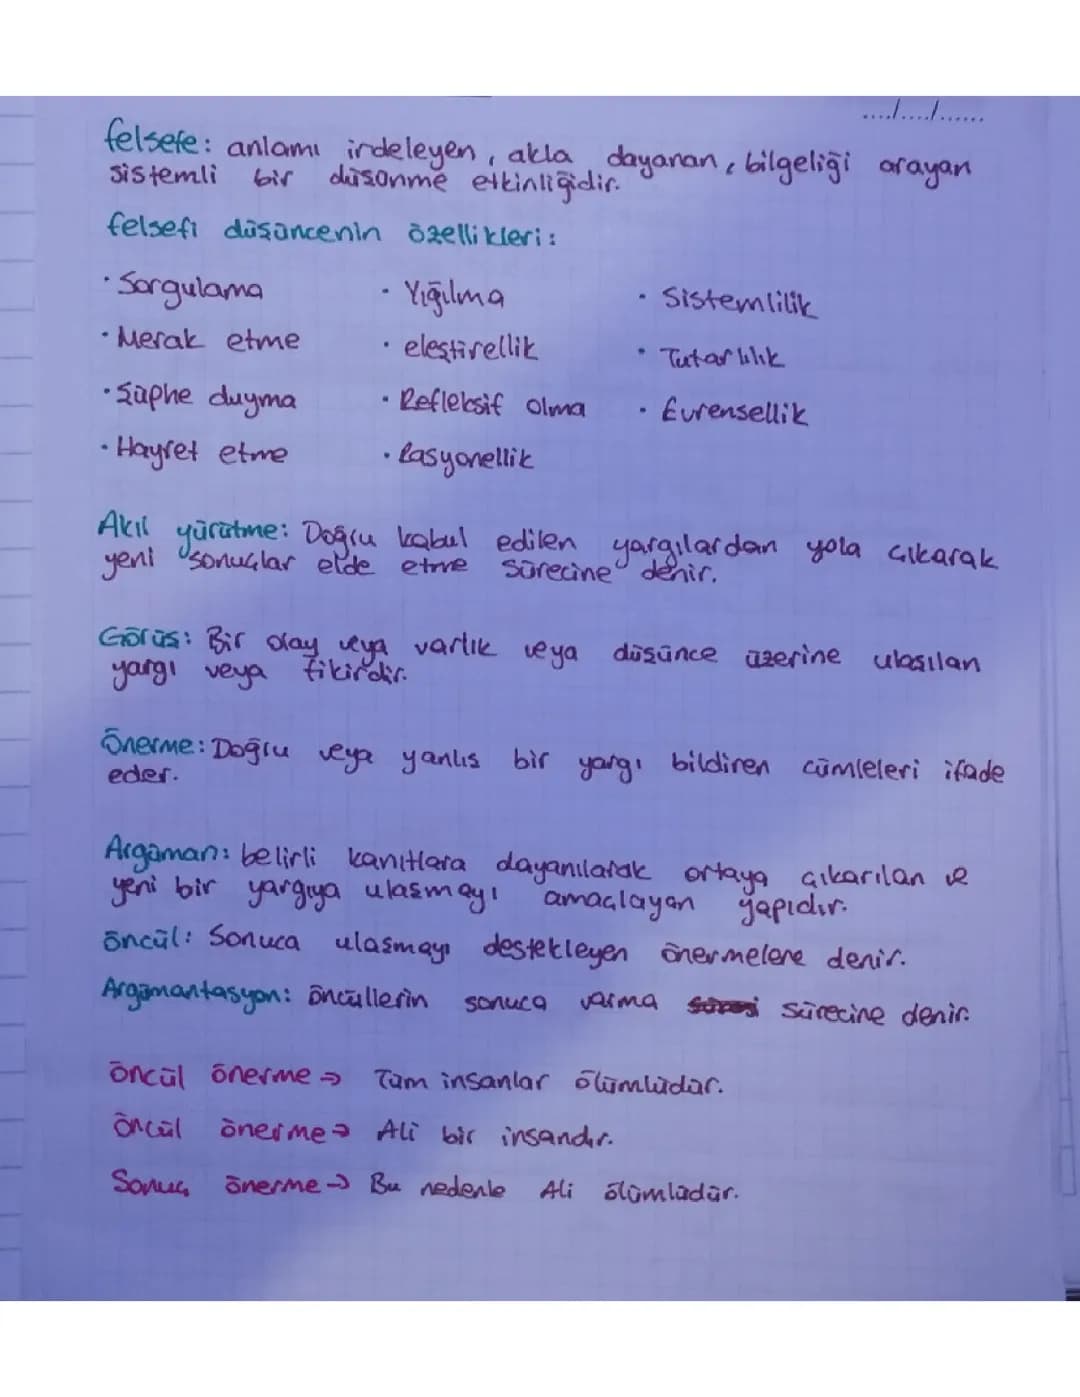 ..../..../......
felsefe: anlamı irdeleyen, akla dayanan, bilgeliği arayan
sistemli bir düşünme etkinliğidir.
felsefi düşüncenin özellikleri:
· Sorgulama · Yığılma · Sistemlilik
· Merak etme · eleştirellik · Tutarlılık
· Şüphe duyma · Refleksif olma · Evrensellik
· Hayret etme · Rasyonellik
Akıl yürütme: Doğru kabul edilen yargılardan yola çıkarak
yeni sonuçlar elde etme sürecine denir.
Görüş: Bir olay veya varlık veya düşünce üzerine ulaşılan
yargı veya fikirdir.
Önerme: Doğru veya yanlış bir yargı bildiren cümleleri ifade
eder.
Argüman: belirli kanıtlara dayanılarak ortaya çıkarılan ve
yeni bir yargıya ulaşmayı amaçlayan yapıdır.
öncül: Sonuca ulaşmayı destekleyen önermelere denir.
Argümantasyon: öncüllerin sonuca varma sürecine denir.
öncül önerme → Tüm insanlar ölümlüdür.
öncül önerme → Ali bir insandır.
Sonuç önerme → Bu nedenle Ali ölümlüdür.